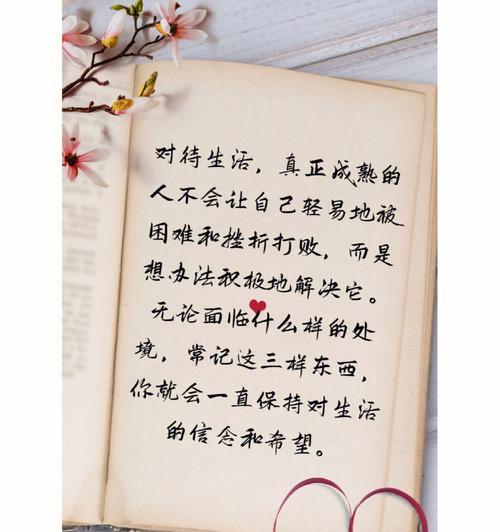 对待生活，真正成熟的
人不会让自己轻易地被
困难和挫折打败，而是
想办法积极地解决它。
无论面临什么样的处
境，常记这三样东西，
你就会一直保持对生活
的信念和希望。